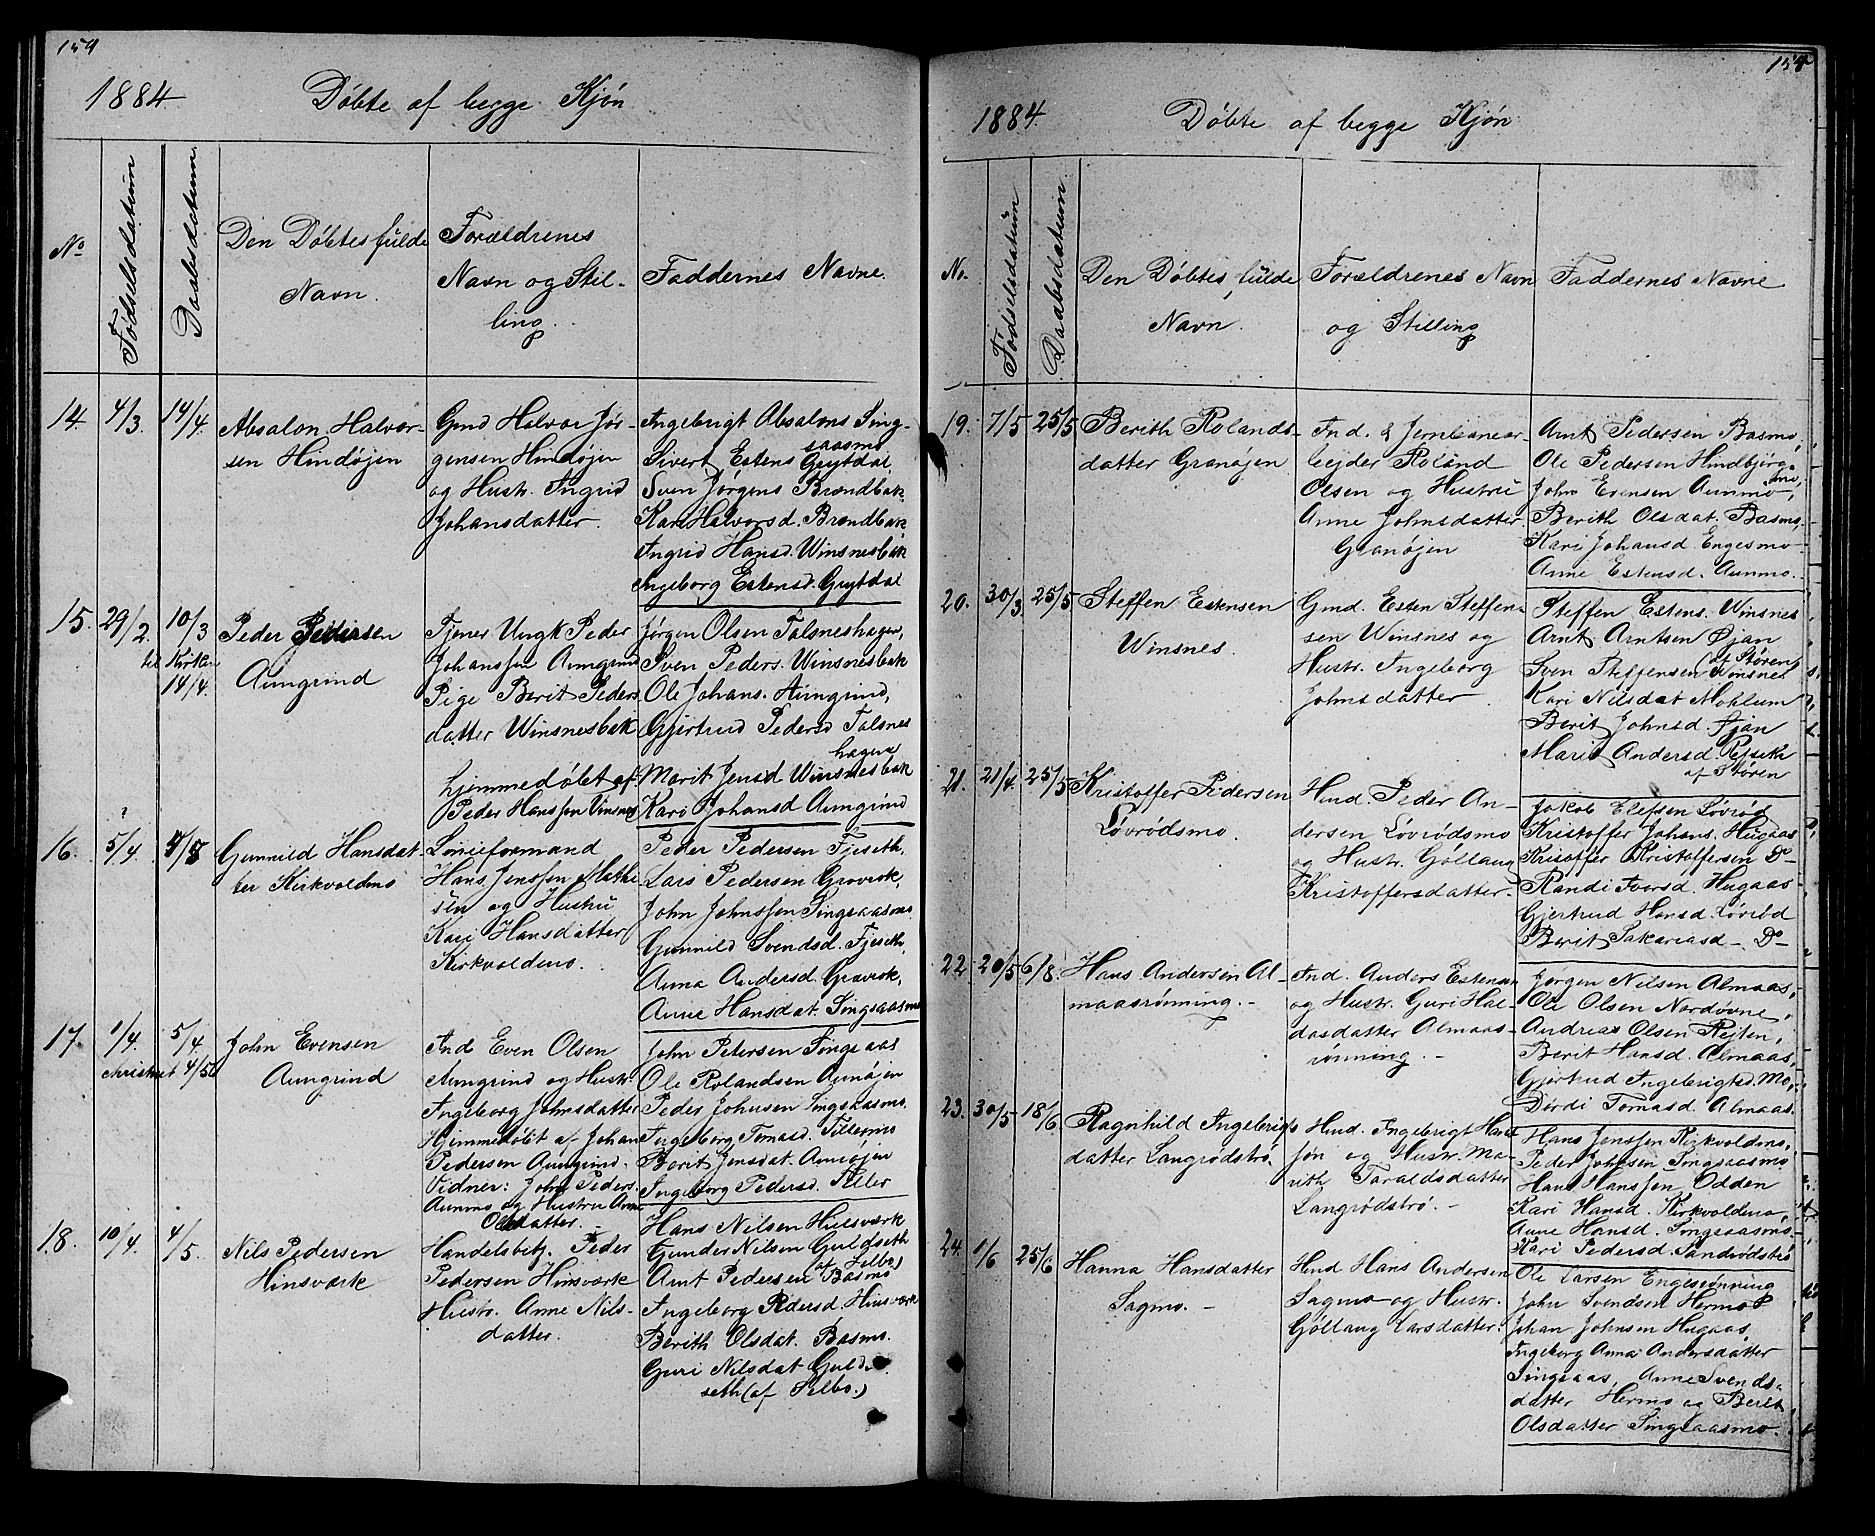 154
1884
Døbte af begge Kjøn
No
Fødselsdatum
Daabsdatum
Den Døbtes fulde
Navn.
Forældrenes
Navn og Stil-
ling.
Faddernes Navne.
14.
4/3.
14/4.
Absalon Halvor-
sen Hindøjen
Gmd Halvor Jør-
gensen Hindøjen
og Hustr. Ingrid
Johansdatter.
Ingebrigt Absalons Sing-
saasmo
Sivert Estens Grytdal,
Sven Jørgens Brændbak,
Kari Halvorsd. Brændbak
Ingrid Hansd. Winsnesbak
Ingeborg Estensd. Grytdal
15.
29/2.
10/3
til Kirken
14/4.
Peder Pedersen
Aungrind
Tjener Ungk Peder
Johanssen Aungrind
Pige Berit Peders
datter Winsnesbak
hjemmedøbt af
Peder Hanssen Vinsnes
Jørgen Olsen Talsneshagen,
Sven Peders. Winsnesbak
Ole Johans. Aungrind,
Gjertrud Pedersd Talsnes
hagen
Marit Jensd Winsnesbak
Kari Johansd Aungrind
16.
5/4.
Gunnild Hansdat-
ter Kirkvoldmo
Hans Jenssen Mathi
sen og Hustru
Kari Hansdatter
Kirkvoldmo.
Peder Pedersen Fjeseth,
Lars Pedersen Gravrok,
John Johnssen Singsaasmo
Gunnild Svendsd. Fjeseth,
Anna Andersd. Gravrok,
Anne Hansdat. Singsaasmo
17.
1/4.
5/4.
christnet 4/5
John Evensen
Aungrind
Ind Even Olsen
Aungrind og Hustr.
Ingeborg Johnsdatter
Hjemmedøbt af Johan
Pedersen Aungrind.
Vidner: John Peders.
Aunmo og Hustru Anne
Olsdatter. -
John Petersen Singsaas
Ole Rolandsen Aunøjen
Peder Johnsen Singsaasmo.
Ingeborg Tomasd. Tillermo
Berit Jensdat. Aunøjen
Ingeborg Pedersd. Tiller
18.
10/4.
4/5.
Nils Pedersen
Hinsværk
Handelsbetj. Peder
Pedersen Hinsværk
Hustr. Anne Nils-
datter.
Hans Nilsen Hulsværk
Gunder Nilsen Guldseth
(af Selbo)
Arnt Pedersen Basmo
Ingeborg Pedersd. Hinsværk
Berith Olsdat. Basmo.
Guri Nilsdat Guld-
seth (af Selbo.)
154
1884.
Døbte af begge Kjøn
No.
Fødselsdatum
Daabsdatum
Den Døbtes fulde
Navn.
Forældrenes Navn
og Stilling
Faddernes Navne
19.
7/5
25/5
Berith Rolands-
datter Granøjen
Ind. & Jernbanear-
bejder Roland
Olsen og Hustru
Anne Johnsdatter
Granøjen
Arnt Pedersen Basmo,
Ole Pedersen Hindbjørgs-
mo,
John Evensen Aunmo,
Berith Olsdat. Basmo.
Kari Johansd. Engesmo
Anne Estensd. Aunmo.
20.
30/3
25/5
Steffen Estensen
Winsnes.
Gmd. Esten Steffen-
sen Winsnes og
Hustr. Ingeborg
Johnsdatter
Steffen Estens. Winsnes
Arnt Arntsen Øjan
(af Støren)
Sven Steffensen Winsnes
Kari Nilsdat Moklum
Berit Johnsd. Øjan
Marit Andersd.
af Støren
21.
21/4.
25/5
Kristoffer Pedersen
Løvrødsmo.
Hmd. Peder An-
dersen Løvrødsmo
og Hustr. Gøllaug
Kristoffersdatter.
Jakob Elefsen Løvrød
Kristoffer Johans. Hugaas
Kristoffer Kristoffersen Do-
Randi Iversd. Hugaas
Gjertrud Hansd. Løvrød
Berit Sakariasd - Do-
22.
20/5
6/8.
Hans Andersen Al-
maasrønning. -
Ind. Anders Estensen
og Hustr. Guri Hal-
dasdatter Almaas-
rønning. -
Jørgen Nilsen Almaas,
Ole Olsen Nordøvne,
Andreas Olsen Rejten,
Berit Hansd. Almaas,
Gjertrud Ingebrigtsd. Mo,
Dordi Tomasd. Almaas.
23.
30/5
18/6.
Ragnhild Ingebrigts
datter Langrødstrø.
Hmd. Ingebrigt Hans
søn og Hustr. Ma-
rith Taraldsdatter
Langrødstrø. -
Hans Jenssen Kirkvoldmo,
Peder Johnsen Singsaasmo
Hans Hanssen Odden
Kari Hansd. Kirkvoldmo,
Anne Hansd. Singsaasmo
Kari Pedersd. Sandrødstrø
24.
1/6
25/6
Hanna Hansdatter
Sagmo. -
Hmd Hans Andersen
Sagmo og Hustr.
Gøllaug Larsdatter.
Ole Larsen Engesrønning
John Svendsen Hermo
Johan Johnsen Hugaas,
Ingeborg Anna Andersdatter
Singsaas, Anne Svends-
datter Hermo og Berit
Olsdatter Singsaasmo.